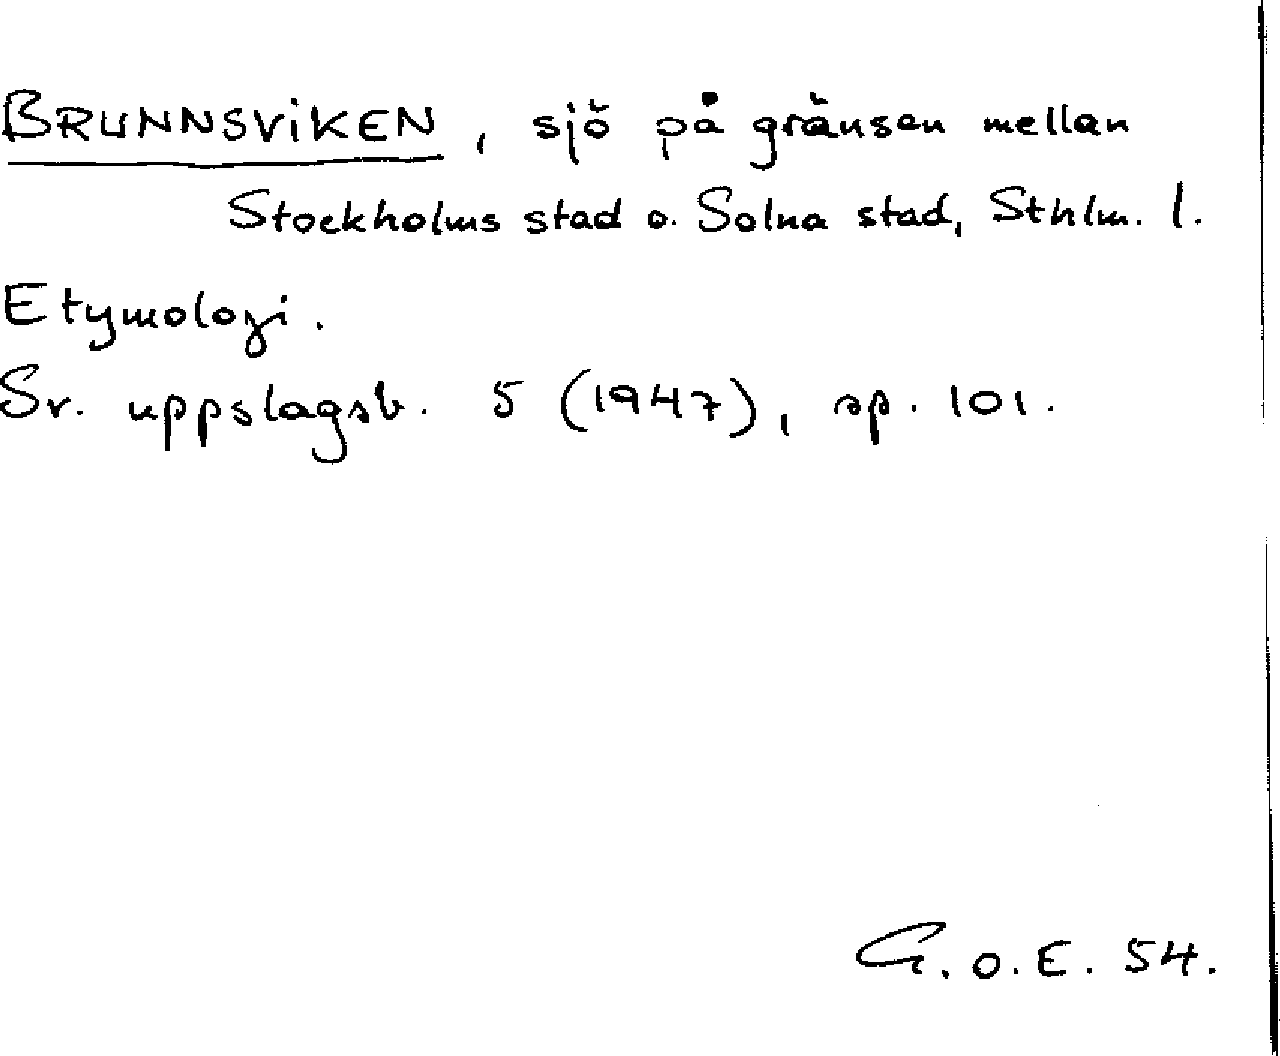 BRUNNSVIKEN, sjö på gränsen mellan
Stockholms stad o. Solna stad, Sthlm. l.
Etymologi.
Sv. uppslagsb. 5 (1947), sp. 101.
G.O.E. 54.